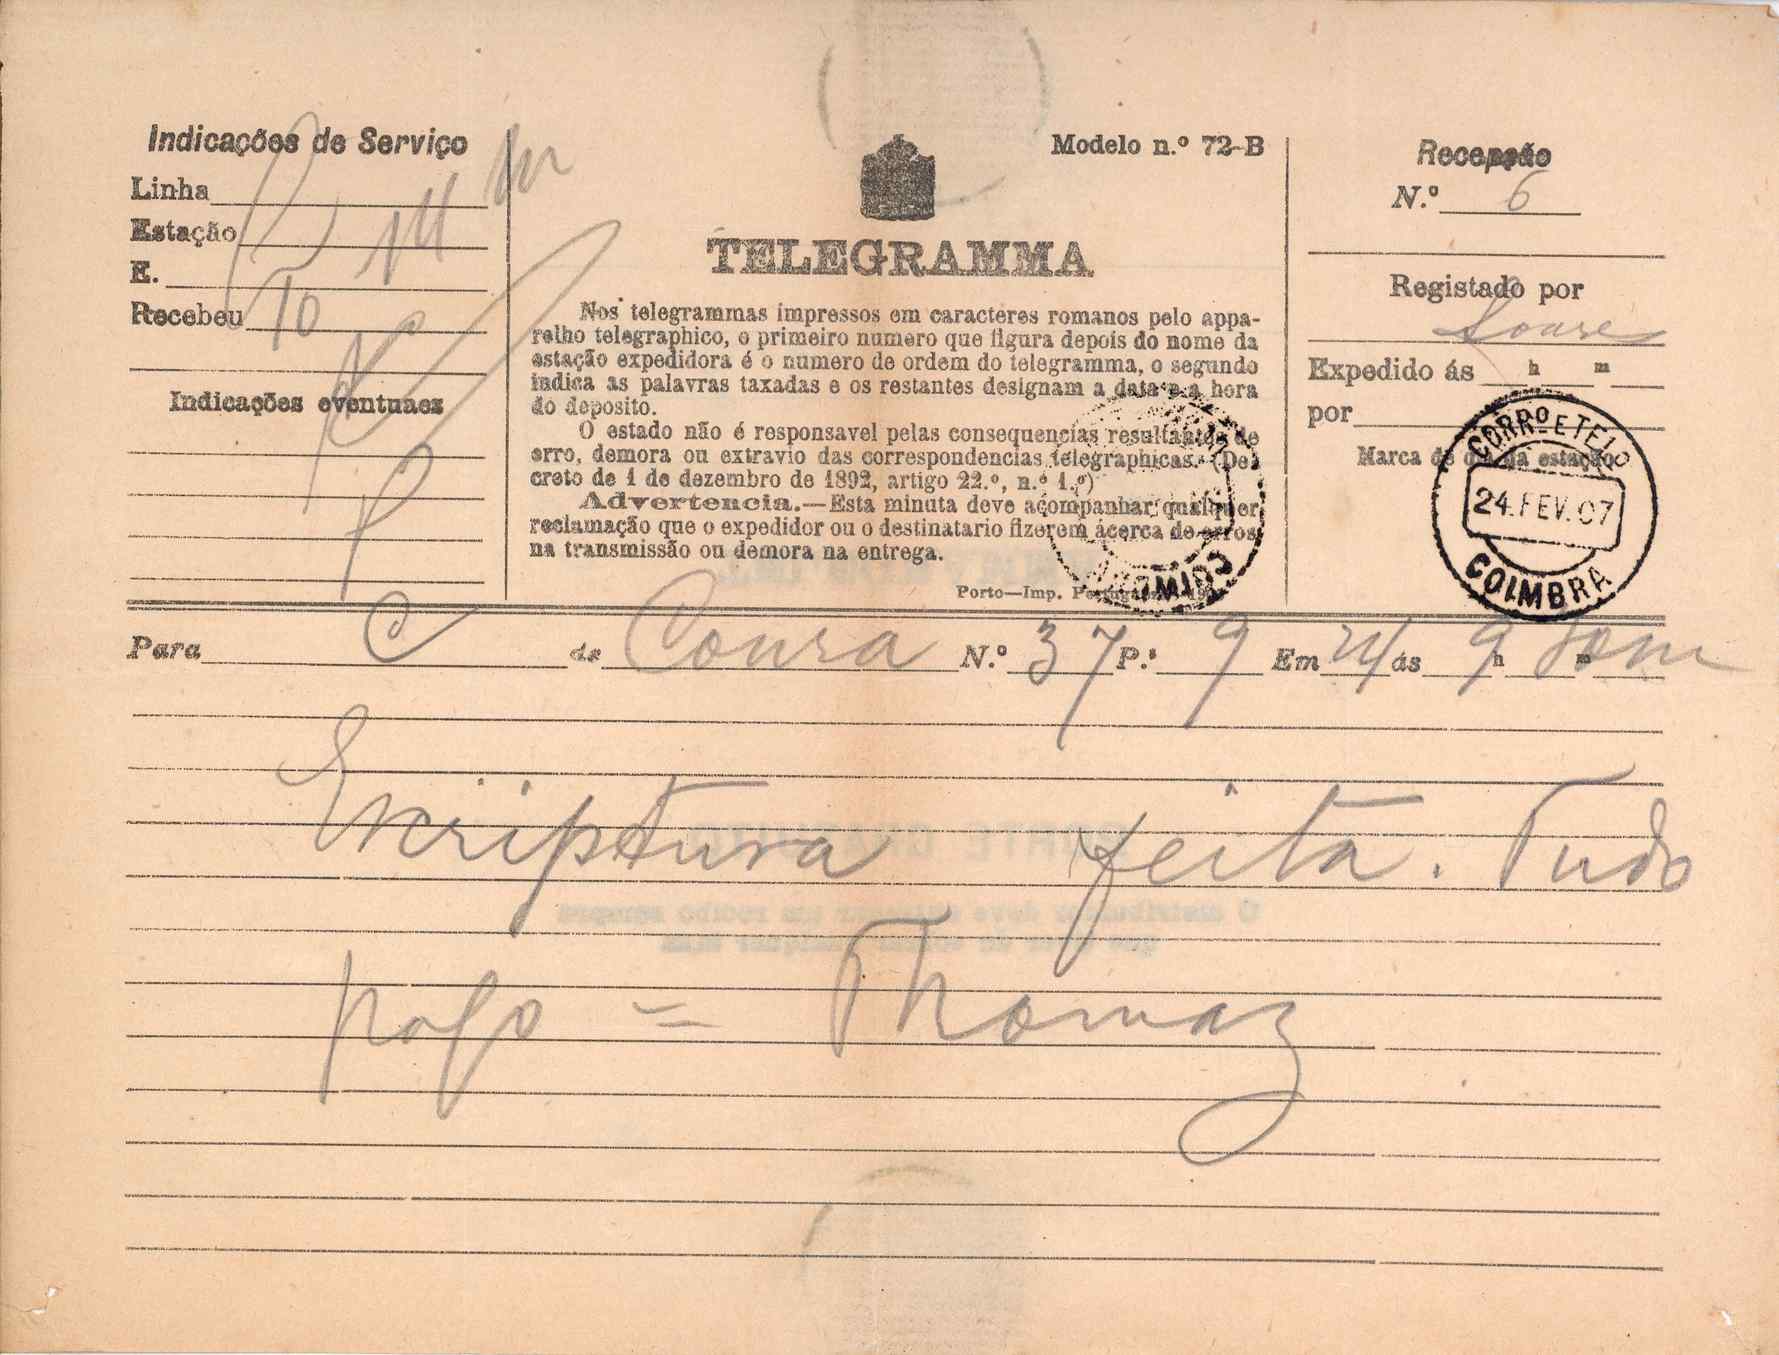 Indicações de Serviço
Linha
Estação
E.
Recebeu 10
Indicações eventuaes
Modelo n.º 72-B
TELEGRAMMA
Nos telegrammas impressos em caracteres romanos pelo appa-
relho telegraphico, o primeiro numero que figura depois do nome da
estação expedidora é o numero de ordem do telegramma, o segundo
indica as palavras taxadas e os restantes designam a data e a hora
do deposito.
O estado não é responsavel pelas consequencias resultantes de
erro, demora ou extravio das correspondencias telegraphicas. (De-
creto de 1 de dezembro de 1892, artigo 22.º, n.º 1.º)
Advertencia.—Esta minuta deve acompanhar qualquer
reclamação que o expedidor ou o destinatario fizerem ácerca de erros
na transmissão ou demora na entrega.
Porto—Imp. Portugueza
Recepção
N.º 6
Registado por
Soares
Expedido ás h m
por
Marca de dia da estação
CORRO E TELO
24. FEV. 07
COIMBRA
COIMBRA
Para C de Coura N.º 37 P.s 9 Em 24 ás 9 h m
Escriptura feita. Tudo
pago = Thomaz